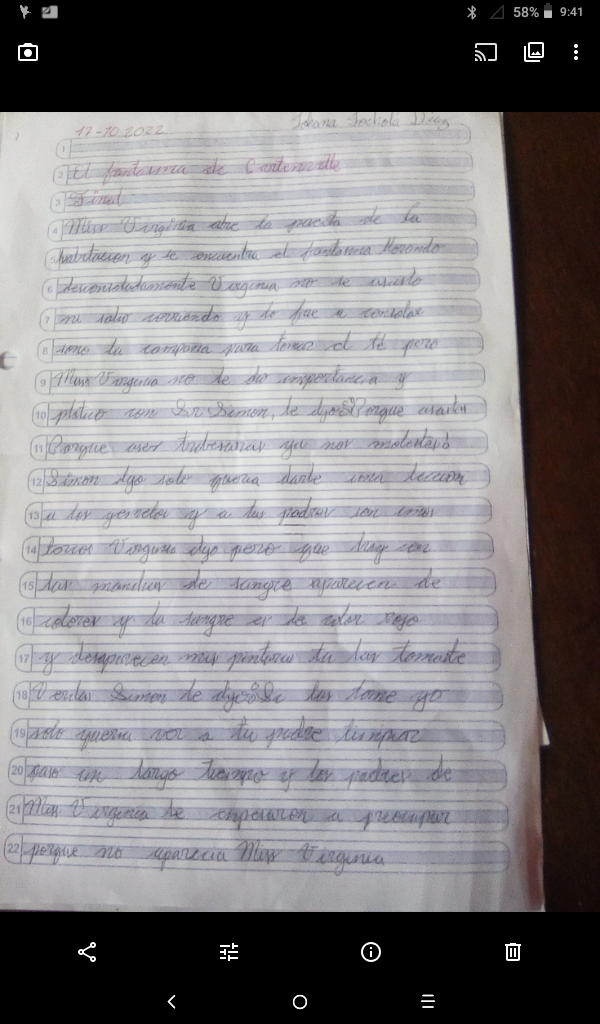 58% 9:41
17-10-2022
1
2 El fantasma de Canterville
3 Final
4 Miss Virginia abre la puerta de la
5 habitacion y se encuentra el fantasma llorando
6 desconsoladamente Virginia no se asusto
7 ni salio corriendo y lo fue a consolar
8 sono la campana para tomar el té pero
9 Miss Virginia no le dio importancia y
10 platico con Sr Simon, le dijo Porque
11 Porque esas trabesuras ya nos molestas
12 Simon dijo solo queria darle una leccion
13 a los gemelos y a tus padres son unos
14 Virginia dijo pero que hay con
15 las manchas de sangre aparecen de
16 colores y la sangre es de color rojo
17 y desaparecen mis pinturas tu las tomaste
18 Verdas Simon le dijo Si las tome yo
19 solo queria ver a tu padre limpiar
20 paso un largo tiempo y los padres de
21 Miss Virginia se empesaron a preocupar
22 porque no aparecia Miss Virginia